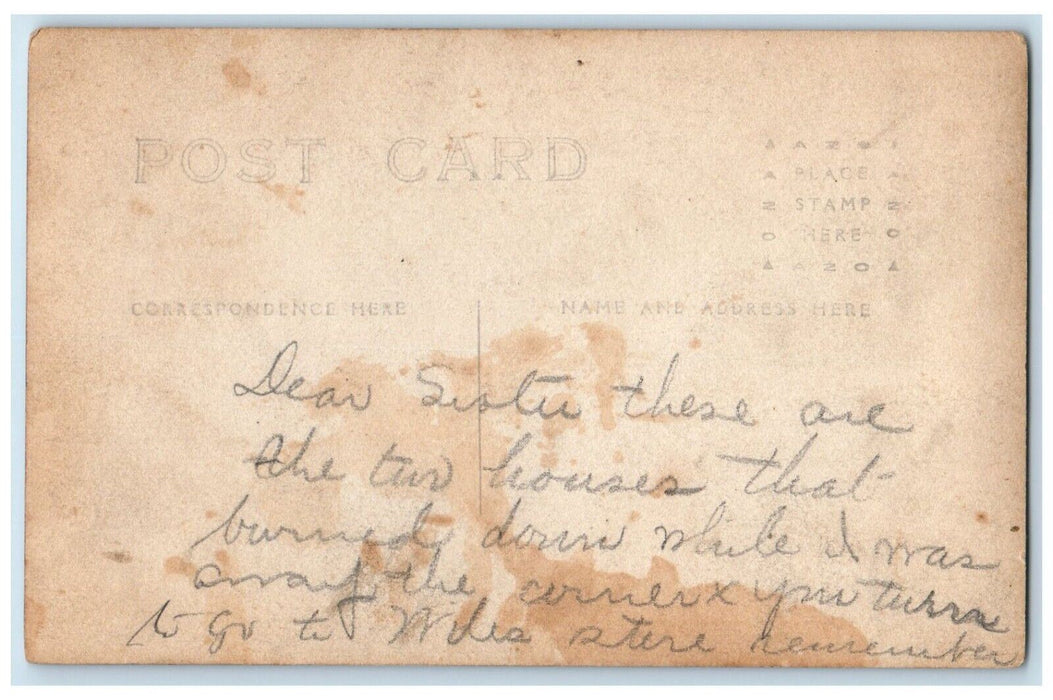 POST CARD
AZO
PLACE
STAMP
HERE
AZO
CORRESPONDENCE HERE
NAME AND ADDRESS HERE
Dear Sister these are
the two houses that
burned down while I was
away the corner x you turn
to go to Wiles store remember